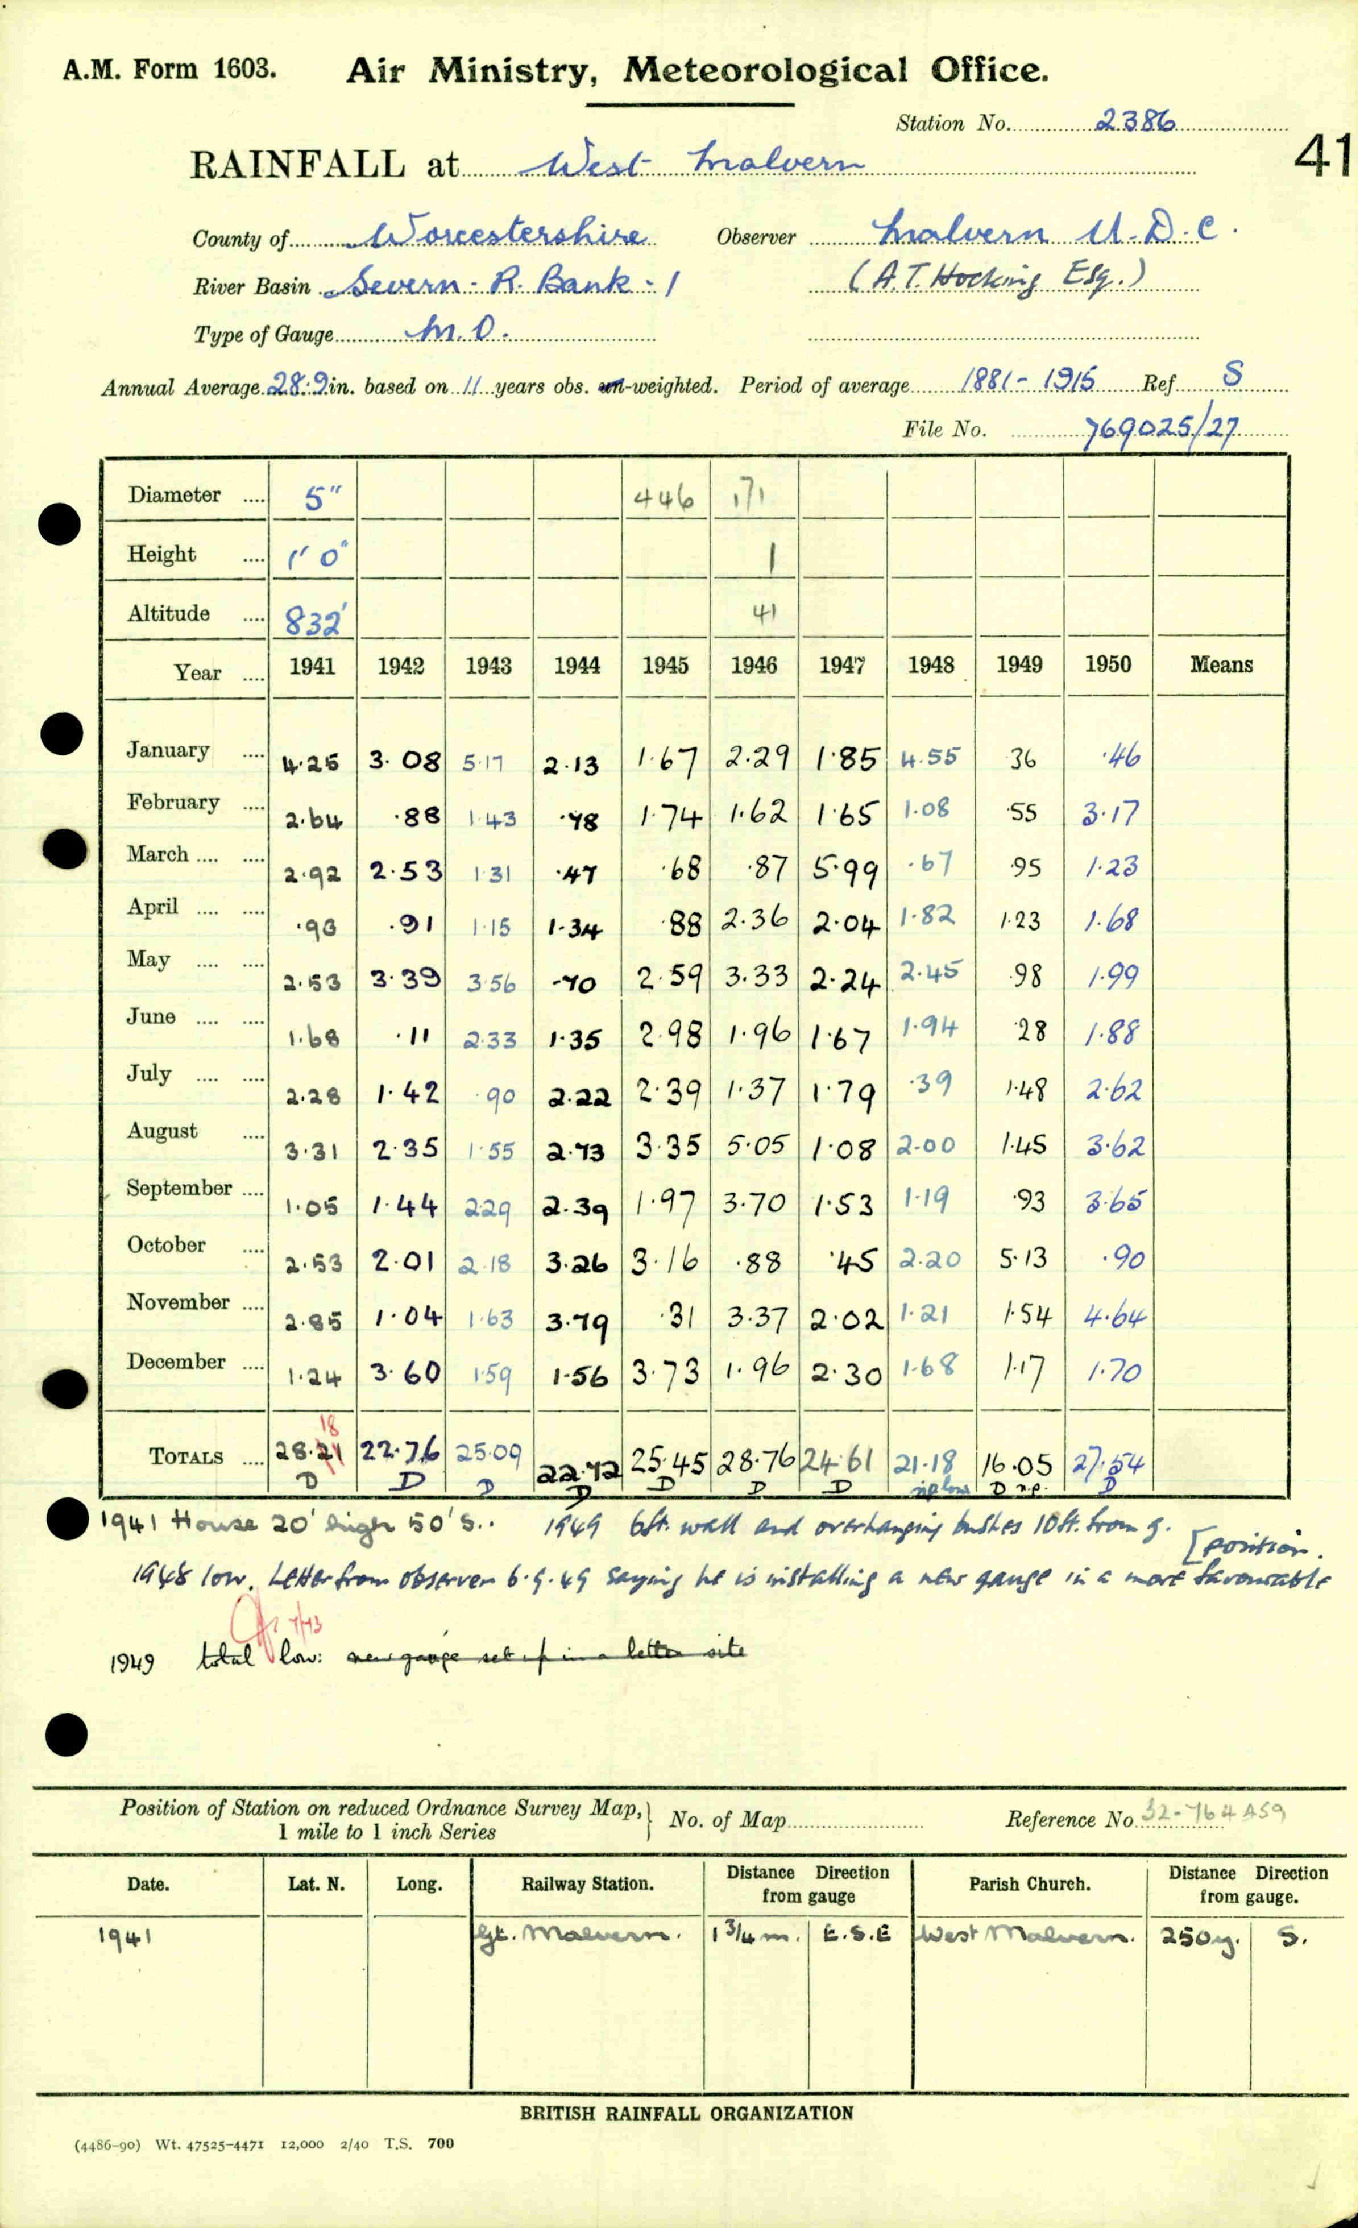 A.M. Form 1603. Air Ministry, Meteorological Office.
Station No. 2386
41
RAINFALL at West Malvern
County of Worcestershire Observer Malvern U.D.C.
River Basin Severn - R. Bank - 1 (A.T. Hocking Esq.)
Type of Gauge M.O.
Annual Average 28.9 in. based on 11 years obs. un-weighted. Period of average 1881-1915 Ref. S
File No. 769025/27
Diameter .... 5" 446 171
Height .... 1' 0" 1
Altitude .... 832' 41
Year .... 1941 1942 1943 1944 1945 1946 1947 1948 1949 1950 Means
January .... 4.25 3.08 5.17 2.13 1.67 2.29 1.85 4.55 36 .46
February .... 2.64 .88 1.43 .78 1.74 1.62 1.65 1.08 .55 3.17
March .... .... 2.92 2.53 1.31 .47 .68 .87 5.99 .67 .95 1.23
April .... .... .93 .91 1.15 1.34 .88 2.36 2.04 1.82 1.23 1.68
May .... .... 2.53 3.39 3.56 .70 2.59 3.33 2.24 2.45 .98 1.99
June .... .... 1.68 .11 2.33 1.35 2.98 1.96 1.67 1.94 .28 1.88
July .... .... 2.28 1.42 .90 2.22 2.39 1.37 1.79 .39 1.48 2.62
August .... 3.31 2.35 1.55 2.73 3.35 5.05 1.08 2.00 1.45 3.62
September .... 1.05 1.44 2.29 2.39 1.97 3.70 1.53 1.19 .93 3.65
October .... 2.53 2.01 2.18 3.26 3.16 .88 .45 2.20 5.13 .90
November .... 2.85 1.04 1.63 3.79 .31 3.37 2.02 1.21 1.54 4.64
December .... 1.24 3.60 1.59 1.56 3.73 1.96 2.30 1.68 1.17 1.70
18
TOTALS .... 28.21 22.76 25.09 22.72 25.45 28.76 24.61 21.18 16.05 27.54
D D D D D D D low D D
1941 House 20' high 50' S. 1949 6ft. wall and overhanging bushes 10ft. from g.
1948 low. Letter from observer 6.9.49 saying he is installing a new gauge in a more favourable [position.
1949 total low: new gauge set up in a better site
Position of Station on reduced Ordnance Survey Map, 1 mile to 1 inch Series } No. of Map Reference No. 32-764459
Date. Lat. N. Long. Railway Station. Distance Direction from gauge Parish Church. Distance Direction from gauge.
1941 Gt. Malvern. 1 3/4 m. E.S.E West Malvern. 250y. S.
BRITISH RAINFALL ORGANIZATION
(4486-90) Wt. 47525-4471 12,000 2/40 T.S. 700